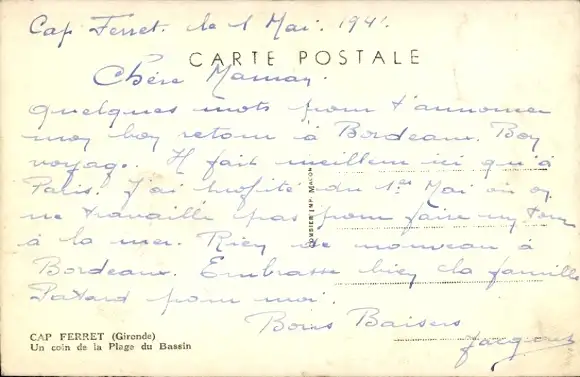 Cap Ferret. le 1 Mai. 1941.
CARTE POSTALE
Chère Maman.
Quelques mots pour t'annoncer
mon bon retour à Bordeaux. Bon
voyage. Il fait meilleur ici qu'à
Paris. J'ai profité du 1er Mai où on
ne travaille pas pour faire un tour
à la mer. Rien de nouveau à
Bordeaux. Embrasse bien la famille
Patard pour moi.
Bons Baisers
Jacques
CAP FERRET (Gironde)
Un coin de la Plage du Bassin
COMBIER IMP. MACON